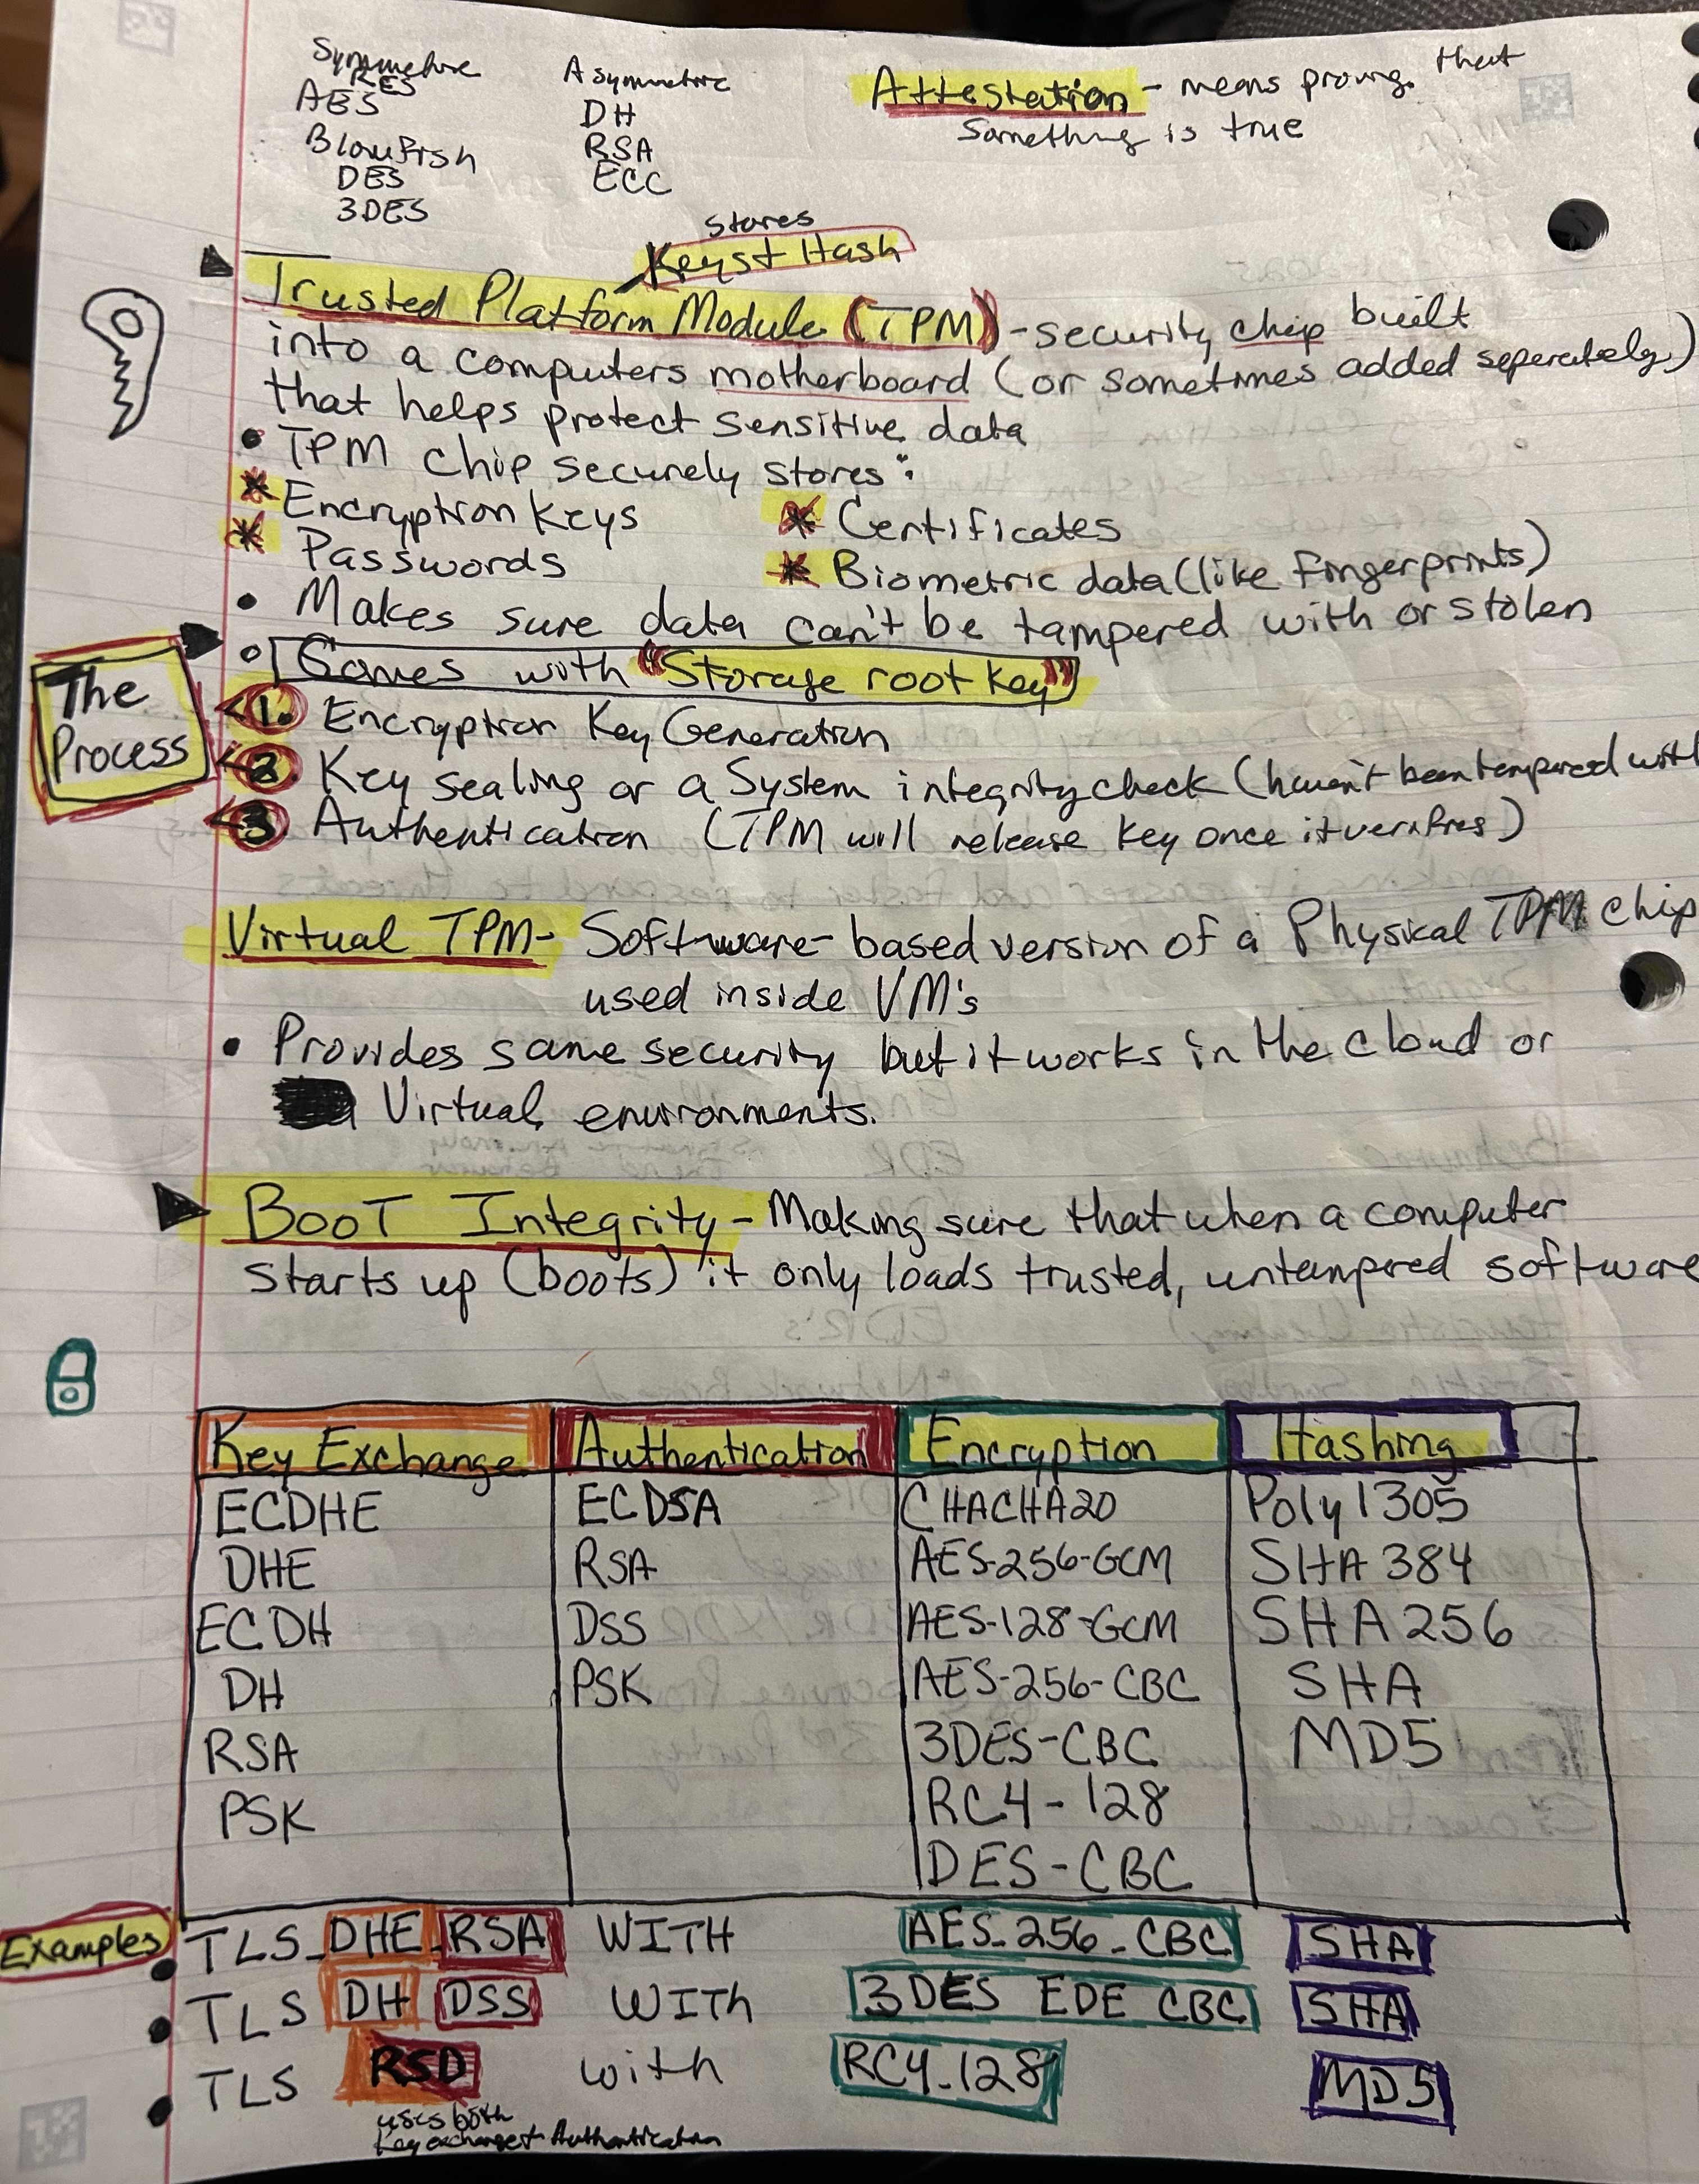 Symmetric
RES
AES
Blowfish
DES
3DES
Asymmetric
DH
RSA
ECC
Attestation - means proving that
Something is true
Stores
Keys + Hash
Trusted Platform Module (TPM) - security chip built
into a computers motherboard (or sometimes added seperately)
that helps protect sensitive data
• TPM chip securely stores:
* Encryption Keys
* Certificates
* Passwords
* Biometric data (like fingerprints)
• Makes sure data can't be tampered with or stolen
The
Process
Comes with "Storage root key"
1. Encryption Key Generation
2. Key sealing or a System integrity check (haven't been tempered with
3. Authentication (TPM will release key once it verifies)
Virtual TPM - Software-based version of a Physical TPM chip
used inside VM's
• Provides same security but it works in the cloud or
Virtual environments.
Boot Integrity - Making sure that when a computer
starts up (boots) it only loads trusted, untampered software
Key Exchange Authentication Encryption Hashing
ECDHE ECDSA CHACHA20 Poly1305
DHE RSA AES-256-GCM SHA384
ECDH DSS AES-128-GCM SHA256
DH PSK AES-256-CBC SHA
RSA 3DES-CBC MD5
PSK RC4-128
DES-CBC
Examples
• TLS_DHE_RSA WITH AES_256_CBC SHA
• TLS DH DSS WITh 3DES EDE CBC SHA
• TLS RSD with RC4_128 MD5
uses both
Key exchange + Authentication